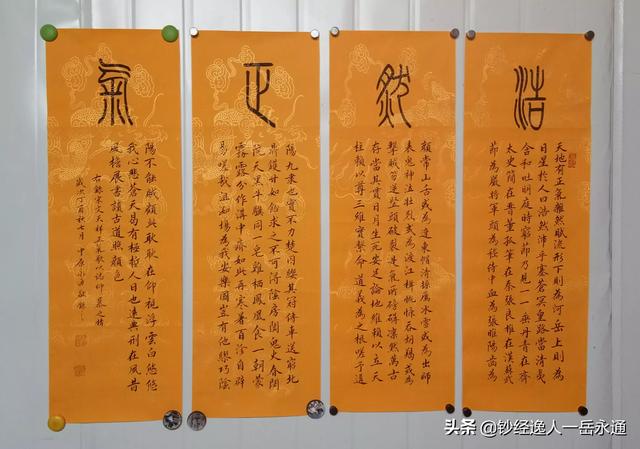 浩
天地有正氣雜然賦流形下則為河岳上則為
日星於人曰浩然沛乎塞蒼冥皇路當清夷
含和吐明庭時窮節乃見一一垂丹青在齊
太史簡在晉董狐筆在秦張良椎在漢蘇武
節為嚴將軍頭為嵇侍中血為張睢陽齒為
然
顏常山舌或為遼東帽清操厲冰雪或為出師
表鬼神泣壯烈或為渡江楫慷慨吞胡羯或為
擊賊笏逆豎頭破裂是氣所磅礴凜然萬古
存當其貫日月生死安足論地維賴以立天
柱賴以尊三維實繫命道義為之根嗟予遘
正
陽九隸也實不力楚囚纓其冠傳車送窮北
鼎鑊甘如飴求之不可得陰房闃鬼火春閟
院天黑牛驥同一皂雞棲鳳凰食一朝蒙
霧露分作溝中瘠如此再寒暑百沴自辟
易嗟哉沮洳場為我安樂國豈有他繆巧陰
氣
陽不能賊顧此耿耿在仰視浮雲白悠悠
我心悲蒼天曷有極哲人日已遠典刑在夙昔
風檐展書讀古道照顏色
右錄宋文天祥正氣歌以誌仰慕之情
歲次丁酉秋七月中原
头条 @钞经逸人一岳永通